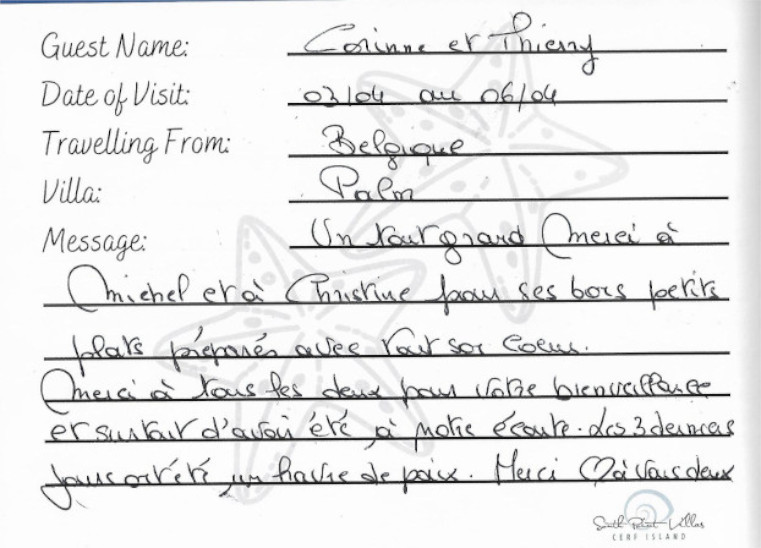 Guest Name: Corinne et Thierry
Date of Visit: 03/04 au 06/04
Travelling From: Belgique
Villa: Palm
Message: Un tout grand merci à
Michel et à Christine pour ses bons petits
plats préparés avec tout son coeur.
Merci à tous les deux pour votre bienveillance
et surtout d'avoir été à notre écoute. Les 3 derniers
jours ont été un havre de paix. Merci à vous deux
South Point Villas
CERF ISLAND